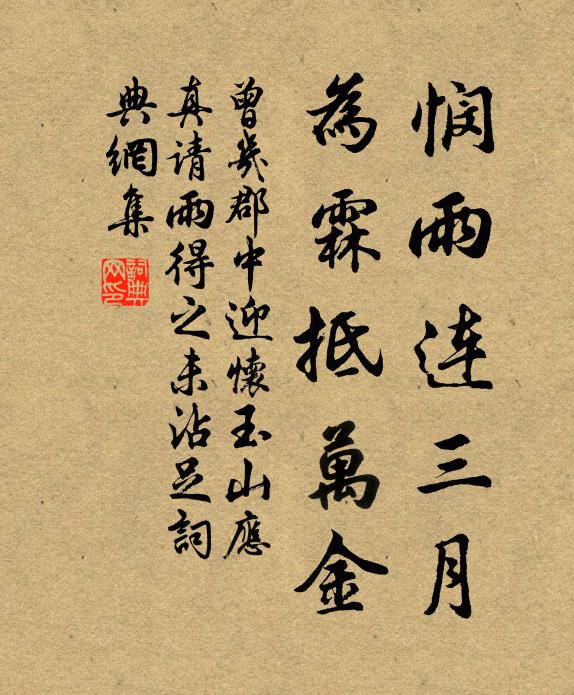 悯雨连三月
為霖抵萬金
曾幾郡中迎懷玉山應
真请雨得之未沾足詞
典網集
詞典
网印